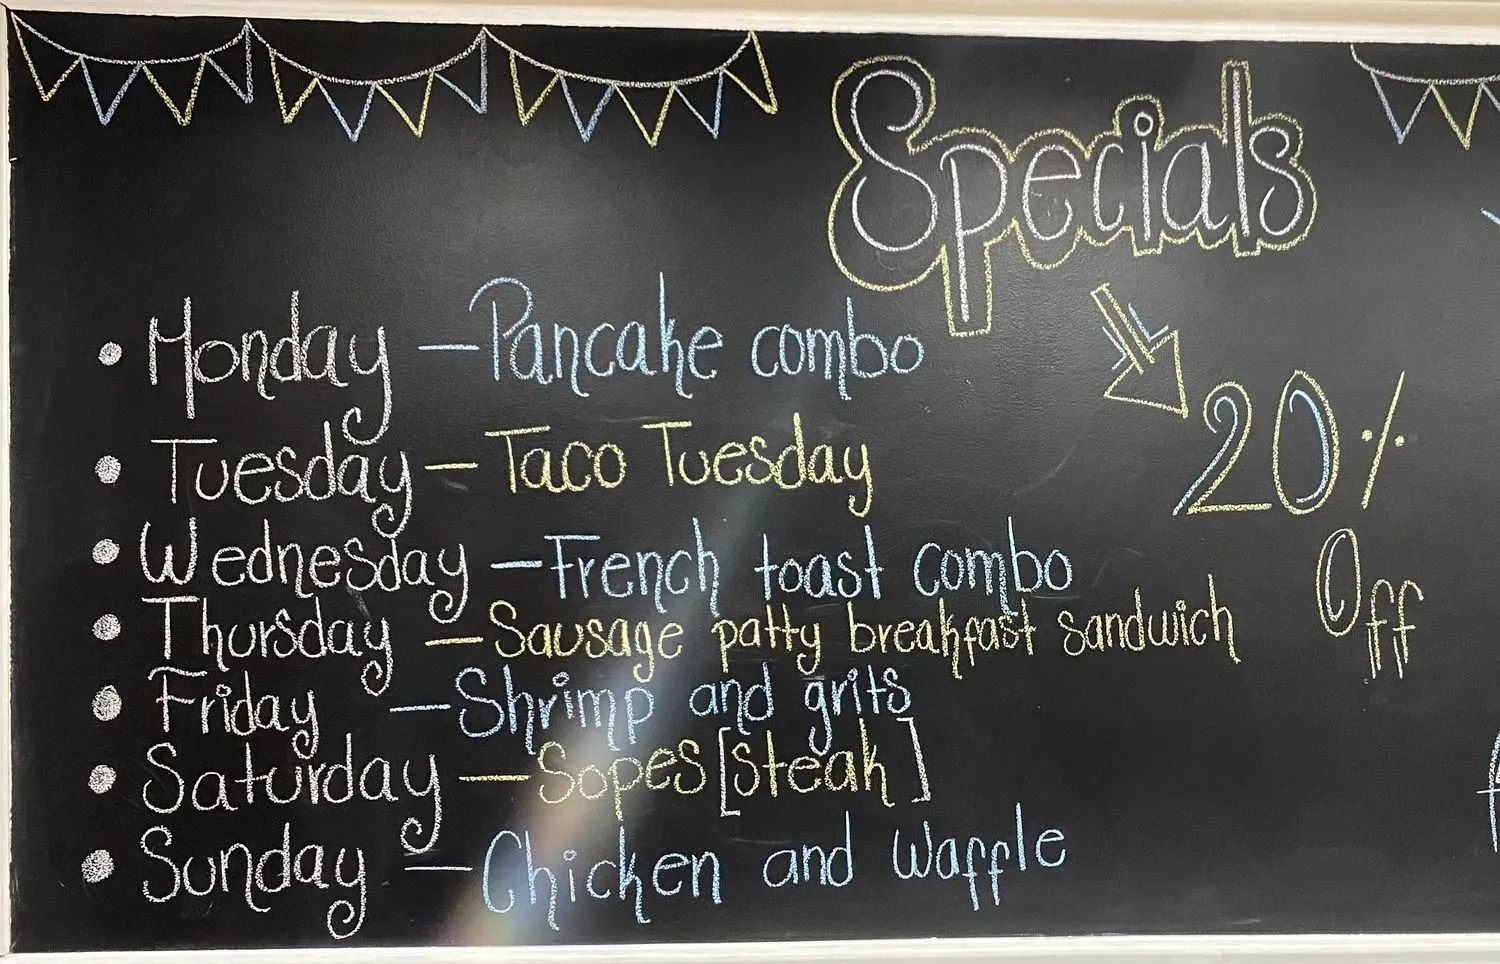 Specials
• Monday — Pancake combo
• Tuesday — Taco Tuesday
• Wednesday — French toast combo
• Thursday — Sausage patty breakfast sandwich
• Friday — Shrimp and grits
• Saturday — Sopes [steak]
• Sunday — Chicken and Waffle
20%
Off